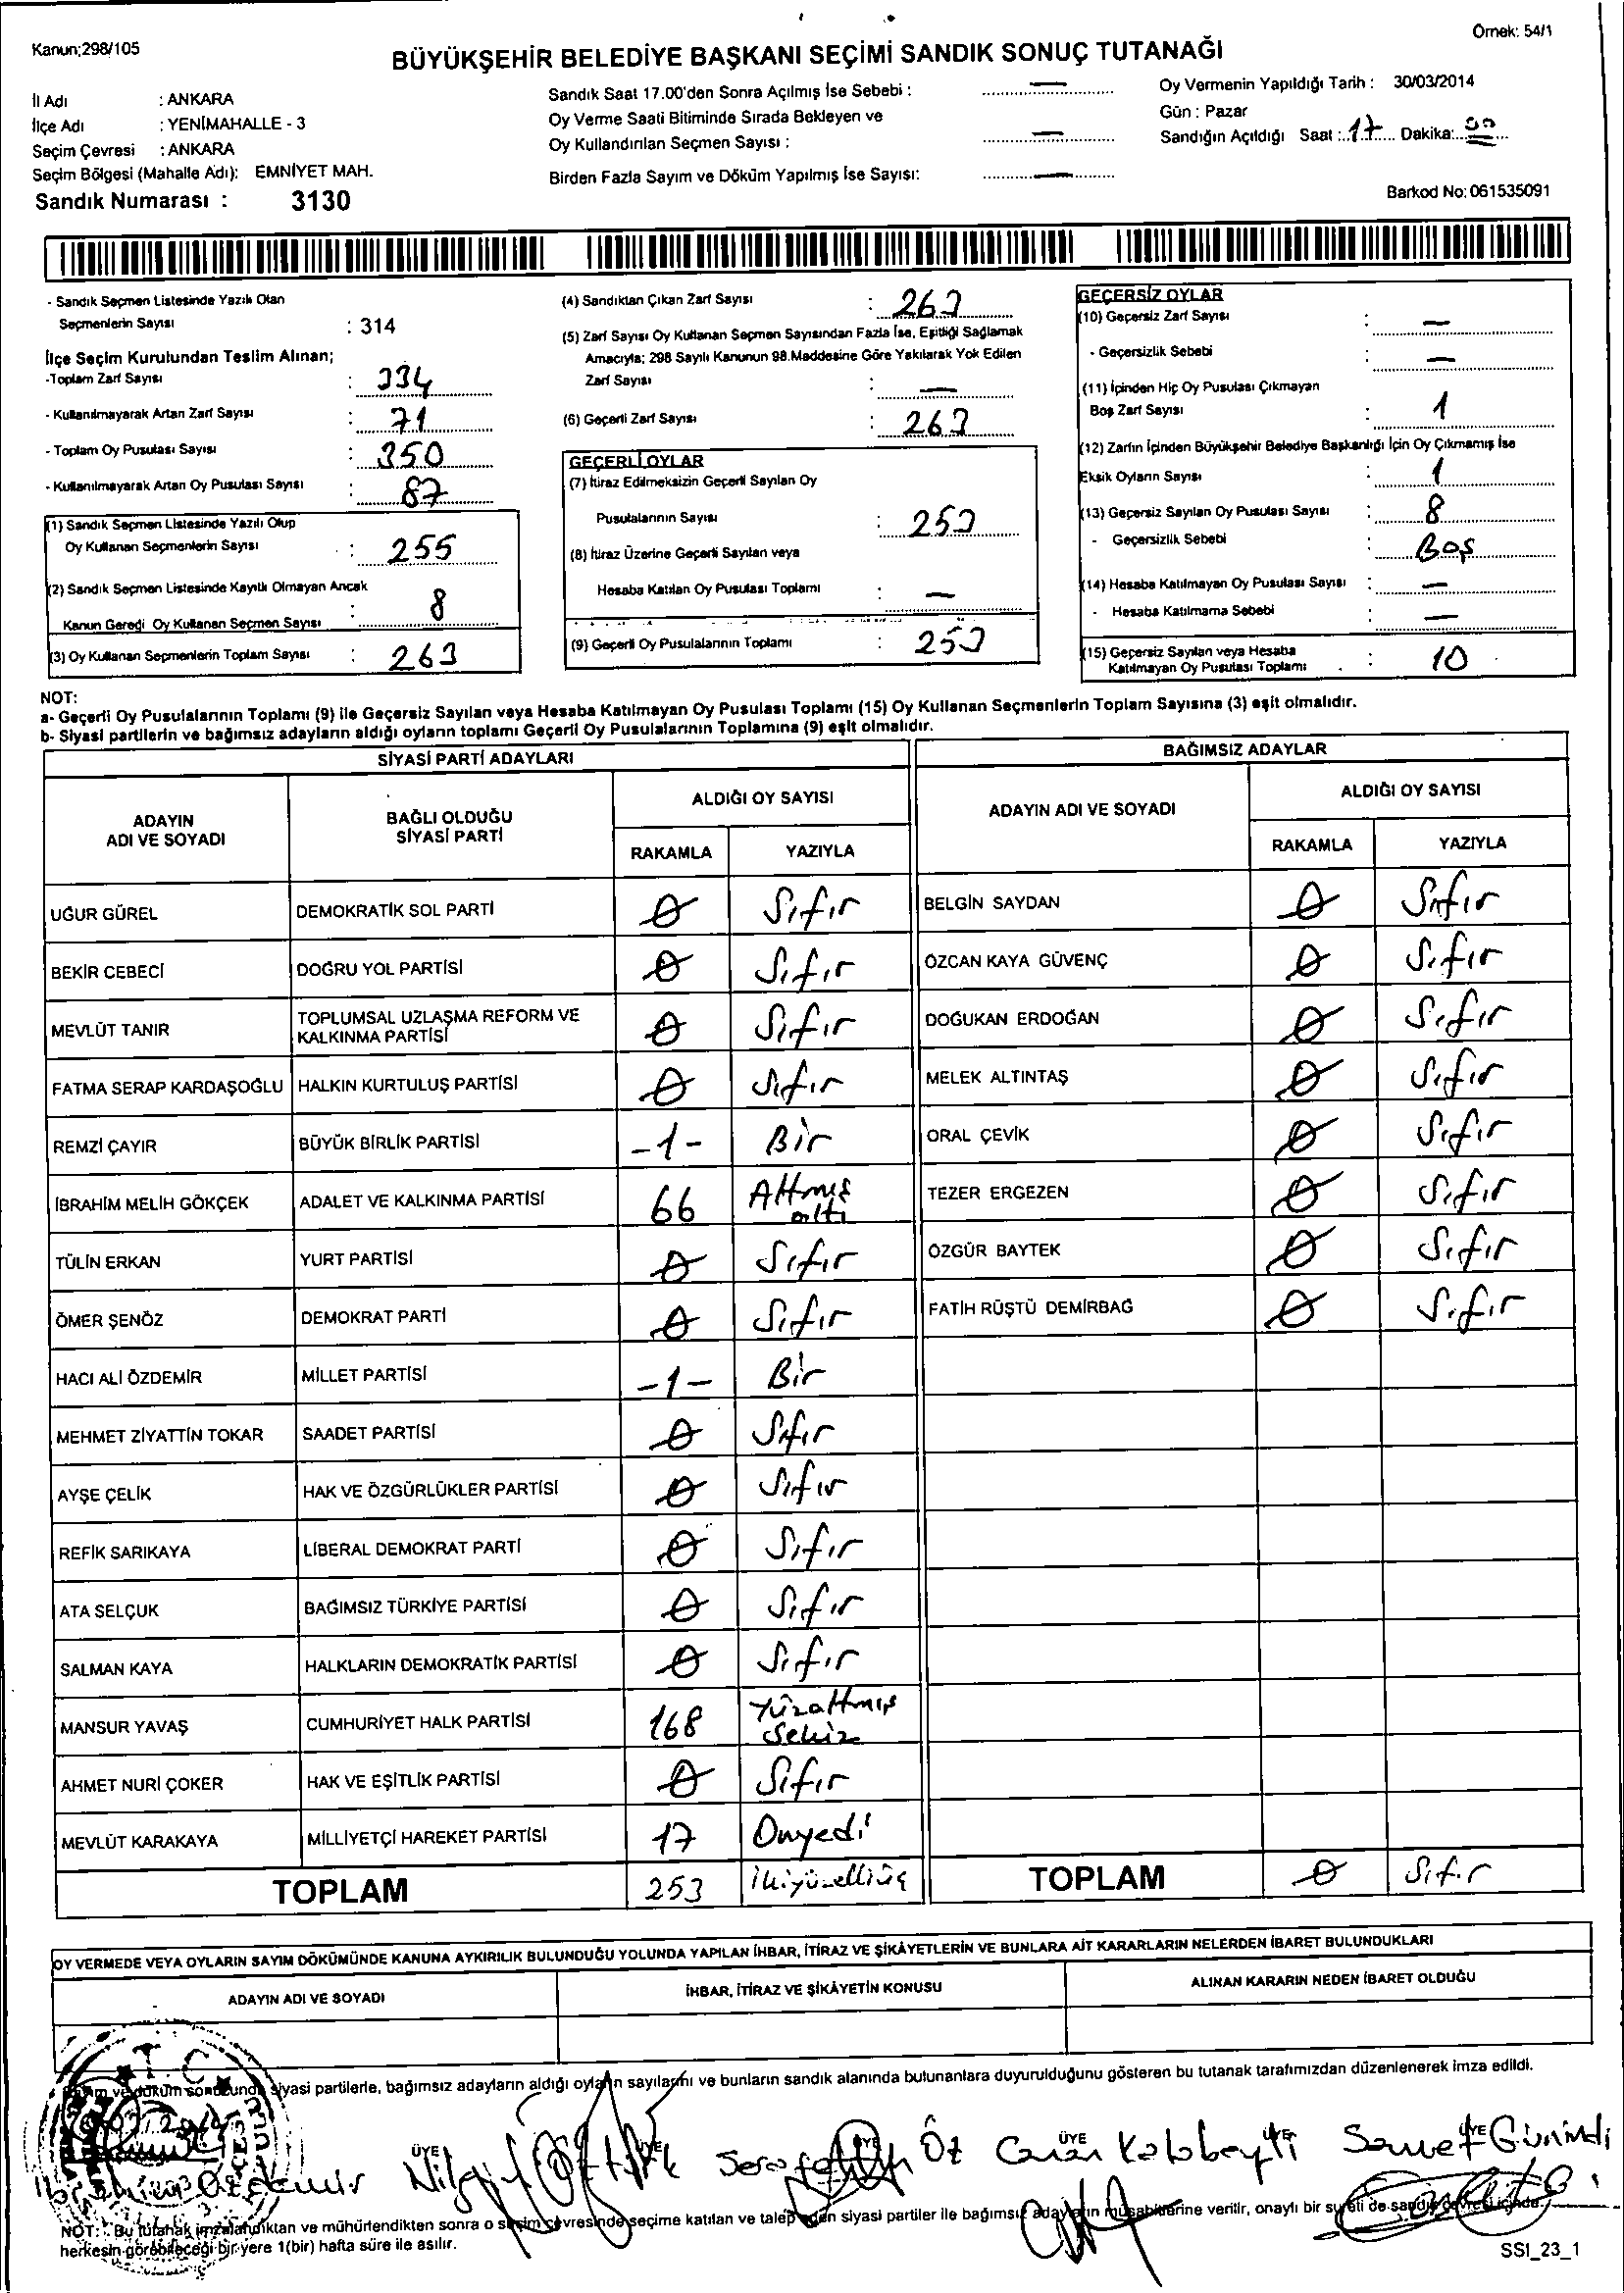 Kanun;298/105
Örnek: 54/1
BÜYÜKŞEHİR BELEDİYE BAŞKANI SEÇİMİ SANDIK SONUÇ TUTANAĞI
İl Adı : ANKARA
İlçe Adı : YENİMAHALLE - 3
Seçim Çevresi : ANKARA
Seçim Bölgesi (Mahalle Adı): EMNİYET MAH.
Sandık Numarası : 3130
Sandık Saat 17.00'den Sonra Açılmış İse Sebebi : —
Oy Verme Saati Bitiminde Sırada Bekleyen ve
Oy Kullandırılan Seçmen Sayısı : —
Birden Fazla Sayım ve Döküm Yapılmış İse Sayısı: —
Oy Vermenin Yapıldığı Tarih : 30/03/2014
Gün : Pazar
Sandığın Açıldığı Saat : 17 Dakika: 00
Barkod No: 061535091
- Sandık Seçmen Listesinde Yazılı Olan
Seçmenlerin Sayısı : 314
İlçe Seçim Kurulundan Teslim Alınan;
-Toplam Zarf Sayısı : 334
- Kullanılmayarak Artan Zarf Sayısı : 71
- Toplam Oy Pusulası Sayısı : 350
- Kullanılmayarak Artan Oy Pusulası Sayısı : 87
(1) Sandık Seçmen Listesinde Yazılı Olup
Oy Kullanan Seçmenlerin Sayısı : 255
(2) Sandık Seçmen Listesinde Kayıtlı Olmayan Ancak
Kanun Gereği Oy Kullanan Seçmen Sayısı : 8
(3) Oy Kullanan Seçmenlerin Toplam Sayısı : 263
(4) Sandıktan Çıkan Zarf Sayısı : 263
(5) Zarf Sayısı Oy Kullanan Seçmen Sayısından Fazla İse, Eşitliği Sağlamak
Amacıyla; 298 Sayılı Kanunun 98.Maddesine Göre Yakılarak Yok Edilen
Zarf Sayısı : —
(6) Geçerli Zarf Sayısı : 263
GEÇERLİ OYLAR
(7) İtiraz Edilmeksizin Geçerli Sayılan Oy
Pusulalarının Sayısı : 253
(8) İtiraz Üzerine Geçerli Sayılan veya
Hesaba Katılan Oy Pusulası Toplamı : —
(9) Geçerli Oy Pusulalarının Toplamı : 253
GEÇERSİZ OYLAR
(10) Geçersiz Zarf Sayısı : —
- Geçersizlik Sebebi : —
(11) İçinden Hiç Oy Pusulası Çıkmayan
Boş Zarf Sayısı : 1
(12) Zarfın İçinden Büyükşehir Belediye Başkanlığı İçin Oy Çıkmamış İse
Eksik Oyların Sayısı : 1
(13) Geçersiz Sayılan Oy Pusulası Sayısı : 8
- Geçersizlik Sebebi : Boş
(14) Hesaba Katılmayan Oy Pusulası Sayısı : —
- Hesaba Katılmama Sebebi : —
(15) Geçersiz Sayılan veya Hesaba
Katılmayan Oy Pusulası Toplamı : 10
NOT:
a- Geçerli Oy Pusulalarının Toplamı (9) ile Geçersiz Sayılan veya Hesaba Katılmayan Oy Pusulası Toplamı (15) Oy Kullanan Seçmenlerin Toplam Sayısına (3) eşit olmalıdır.
b- Siyasi partilerin ve bağımsız adayların aldığı oyların toplamı Geçerli Oy Pusulalarının Toplamına (9) eşit olmalıdır.
SİYASİ PARTİ ADAYLARI
ADAYIN ADI VE SOYADI
BAĞLI OLDUĞU SİYASİ PARTİ
ALDIĞI OY SAYISI
RAKAMLA YAZIYLA
UĞUR GÜREL DEMOKRATİK SOL PARTİ 0 Sıfır
BEKİR CEBECİ DOĞRU YOL PARTİSİ 0 Sıfır
MEVLÜT TANIR TOPLUMSAL UZLAŞMA REFORM VE KALKINMA PARTİSİ 0 Sıfır
FATMA SERAP KARDAŞOĞLU HALKIN KURTULUŞ PARTİSİ 0 Sıfır
REMZİ ÇAYIR BÜYÜK BİRLİK PARTİSİ -1- Bir
İBRAHİM MELİH GÖKÇEK ADALET VE KALKINMA PARTİSİ 66 Altmış altı
TÜLİN ERKAN YURT PARTİSİ 0 Sıfır
ÖMER ŞENÖZ DEMOKRAT PARTİ 0 Sıfır
HACI ALİ ÖZDEMİR MİLLET PARTİSİ -1- Bir
MEHMET ZİYATTİN TOKAR SAADET PARTİSİ 0 Sıfır
AYŞE ÇELİK HAK VE ÖZGÜRLÜKLER PARTİSİ 0 Sıfır
REFİK SARIKAYA LİBERAL DEMOKRAT PARTİ 0 Sıfır
ATA SELÇUK BAĞIMSIZ TÜRKİYE PARTİSİ 0 Sıfır
SALMAN KAYA HALKLARIN DEMOKRATİK PARTİSİ 0 Sıfır
MANSUR YAVAŞ CUMHURİYET HALK PARTİSİ 168 Yüzaltmış Sekiz
AHMET NURİ ÇOKER HAK VE EŞİTLİK PARTİSİ 0 Sıfır
MEVLÜT KARAKAYA MİLLİYETÇİ HAREKET PARTİSİ 17 Onyedi
TOPLAM 253 İkiyüzelliüç
BAĞIMSIZ ADAYLAR
ADAYIN ADI VE SOYADI
ALDIĞI OY SAYISI
RAKAMLA YAZIYLA
BELGİN SAYDAN 0 Sıfır
ÖZCAN KAYA GÜVENÇ 0 Sıfır
DOĞUKAN ERDOĞAN 0 Sıfır
MELEK ALTINTAŞ 0 Sıfır
ORAL ÇEVİK 0 Sıfır
TEZER ERGEZEN 0 Sıfır
ÖZGÜR BAYTEK 0 Sıfır
FATİH RÜŞTÜ DEMİRBAĞ 0 Sıfır
TOPLAM 0 Sıfır
OY VERMEDE VEYA OYLARIN SAYIM DÖKÜMÜNDE KANUNA AYKIRILIK BULUNDUĞU YOLUNDA YAPILAN İHBAR, İTİRAZ VE ŞİKÂYETLERİN VE BUNLARA AİT KARARLARIN NELERDEN İBARET BULUNDUKLARI
ADAYIN ADI VE SOYADI
İHBAR, İTİRAZ VE ŞİKÂYETİN KONUSU
ALINAN KARARIN NEDEN İBARET OLDUĞU
T.C.
Sayım ve döküm sonucunda siyasi partilerle, bağımsız adayların aldığı oyların sayılarını ve bunların sandık alanında bulunanlara duyurulduğunu gösteren bu tutanak tarafımızdan düzenlenerek imza edildi.
ÜYE ÜYE ÜYE ÜYE ÜYE ÜYE
İbrahim Özdemir Nilgün Öztürk Öz Canan Samet
NOT: Bu tutanak imzalandıktan ve mühürlendikten sonra o seçim çevresinde seçime katılan ve talep eden siyasi partiler ile bağımsız adayların müşahitlerine verilir, onaylı bir sureti de sandık çevresi içinde
herkesin görebileceği bir yere 1(bir) hafta süre ile asılır.
SSI_23_1